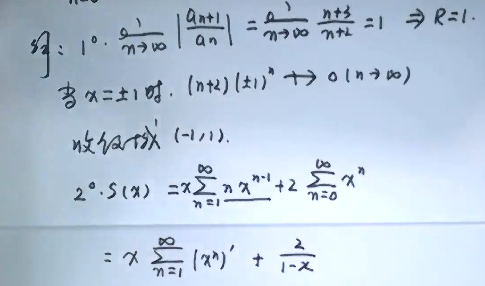 解: 1°. lim n→∞ |an+1/an| = lim n→∞ n+3/n+2 = 1 ⇒ R=1.
当 x=±1时. (n+2)(±1)ⁿ ↛ 0 (n→∞)
收敛域 (-1,1).
2°. S(x) = x ∞∑n=1 n xⁿ⁻¹ + 2 ∞∑n=0 xⁿ
= x ∞∑n=1 (xⁿ)′ + 2/1-x